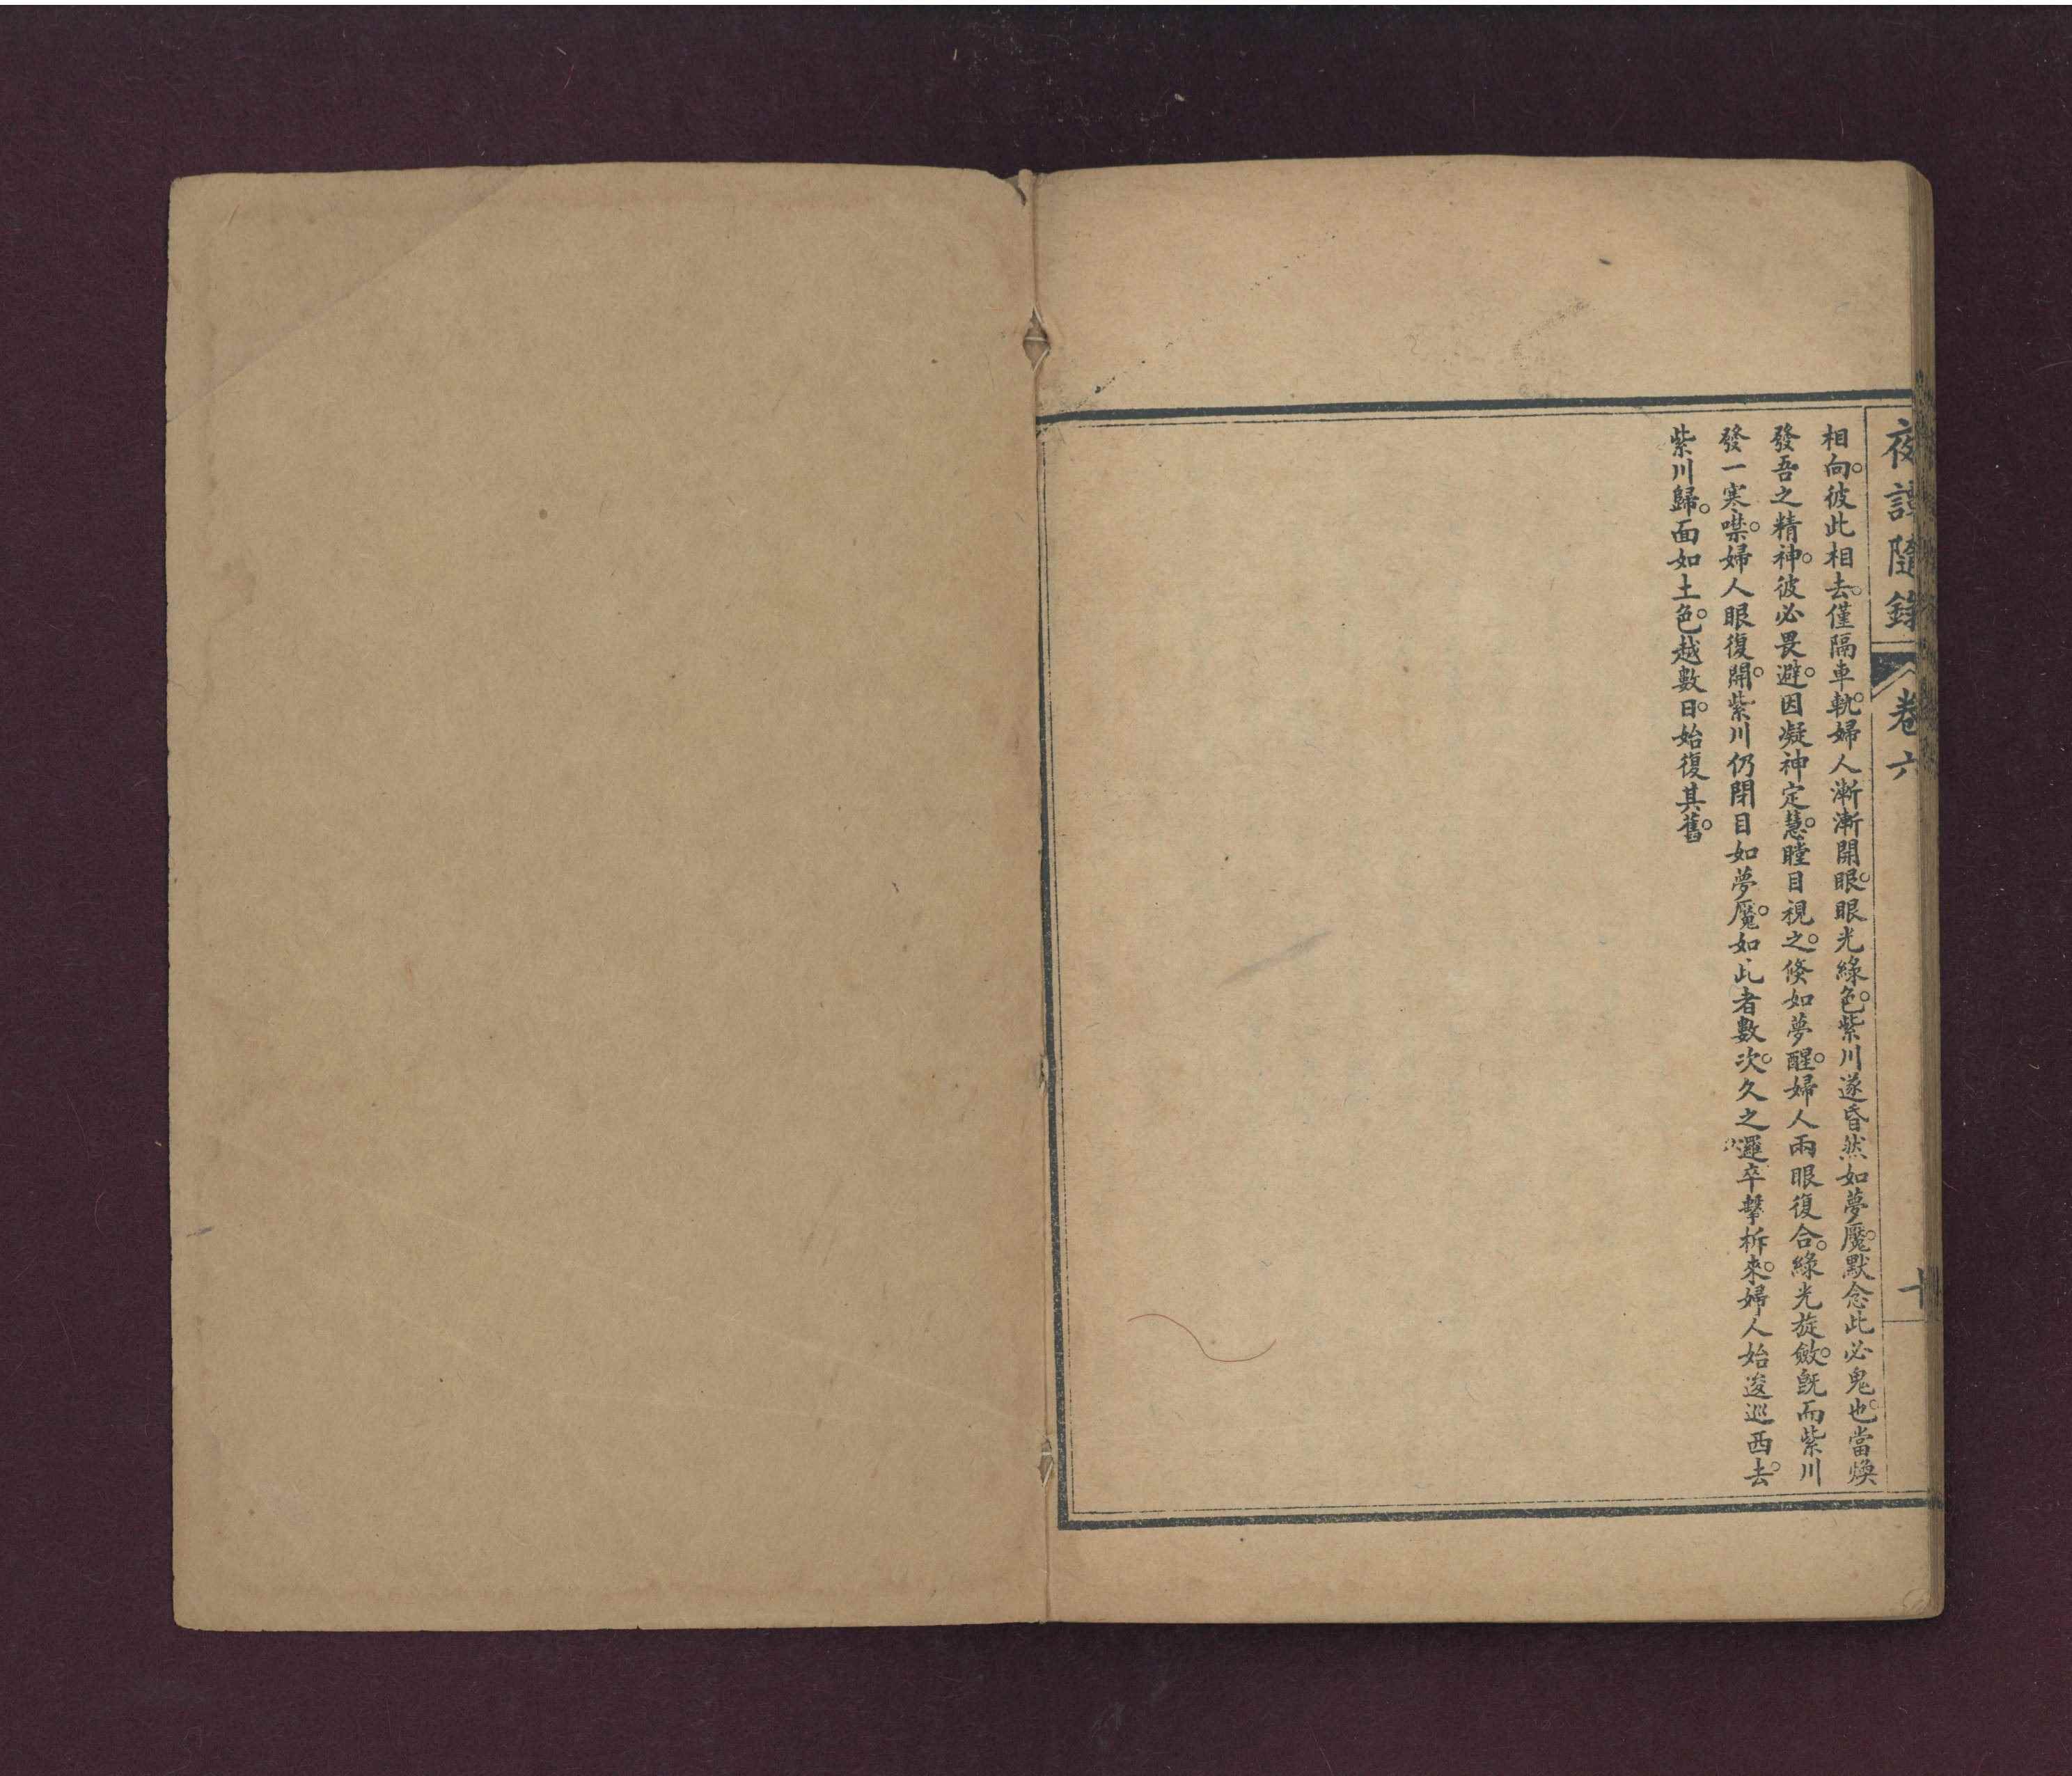 夜譚隨錄 卷六 十
相向。彼此相去。僅隔車軌。婦人漸漸開眼。眼光綠色。紫川遂昏然如夢魘。默念此必鬼也。當煥
發吾之精神。彼必畏避。因凝神定慧。瞠目視之。倏如夢醒。婦人兩眼復合。綠光旋斂。旣而紫川
發一寒噤。婦人眼復開。紫川仍閉目如夢魘。如此者數次。久之邏卒擊柝來。婦人始逡巡西去。
紫川歸。面如土色。越數日。始復其舊。